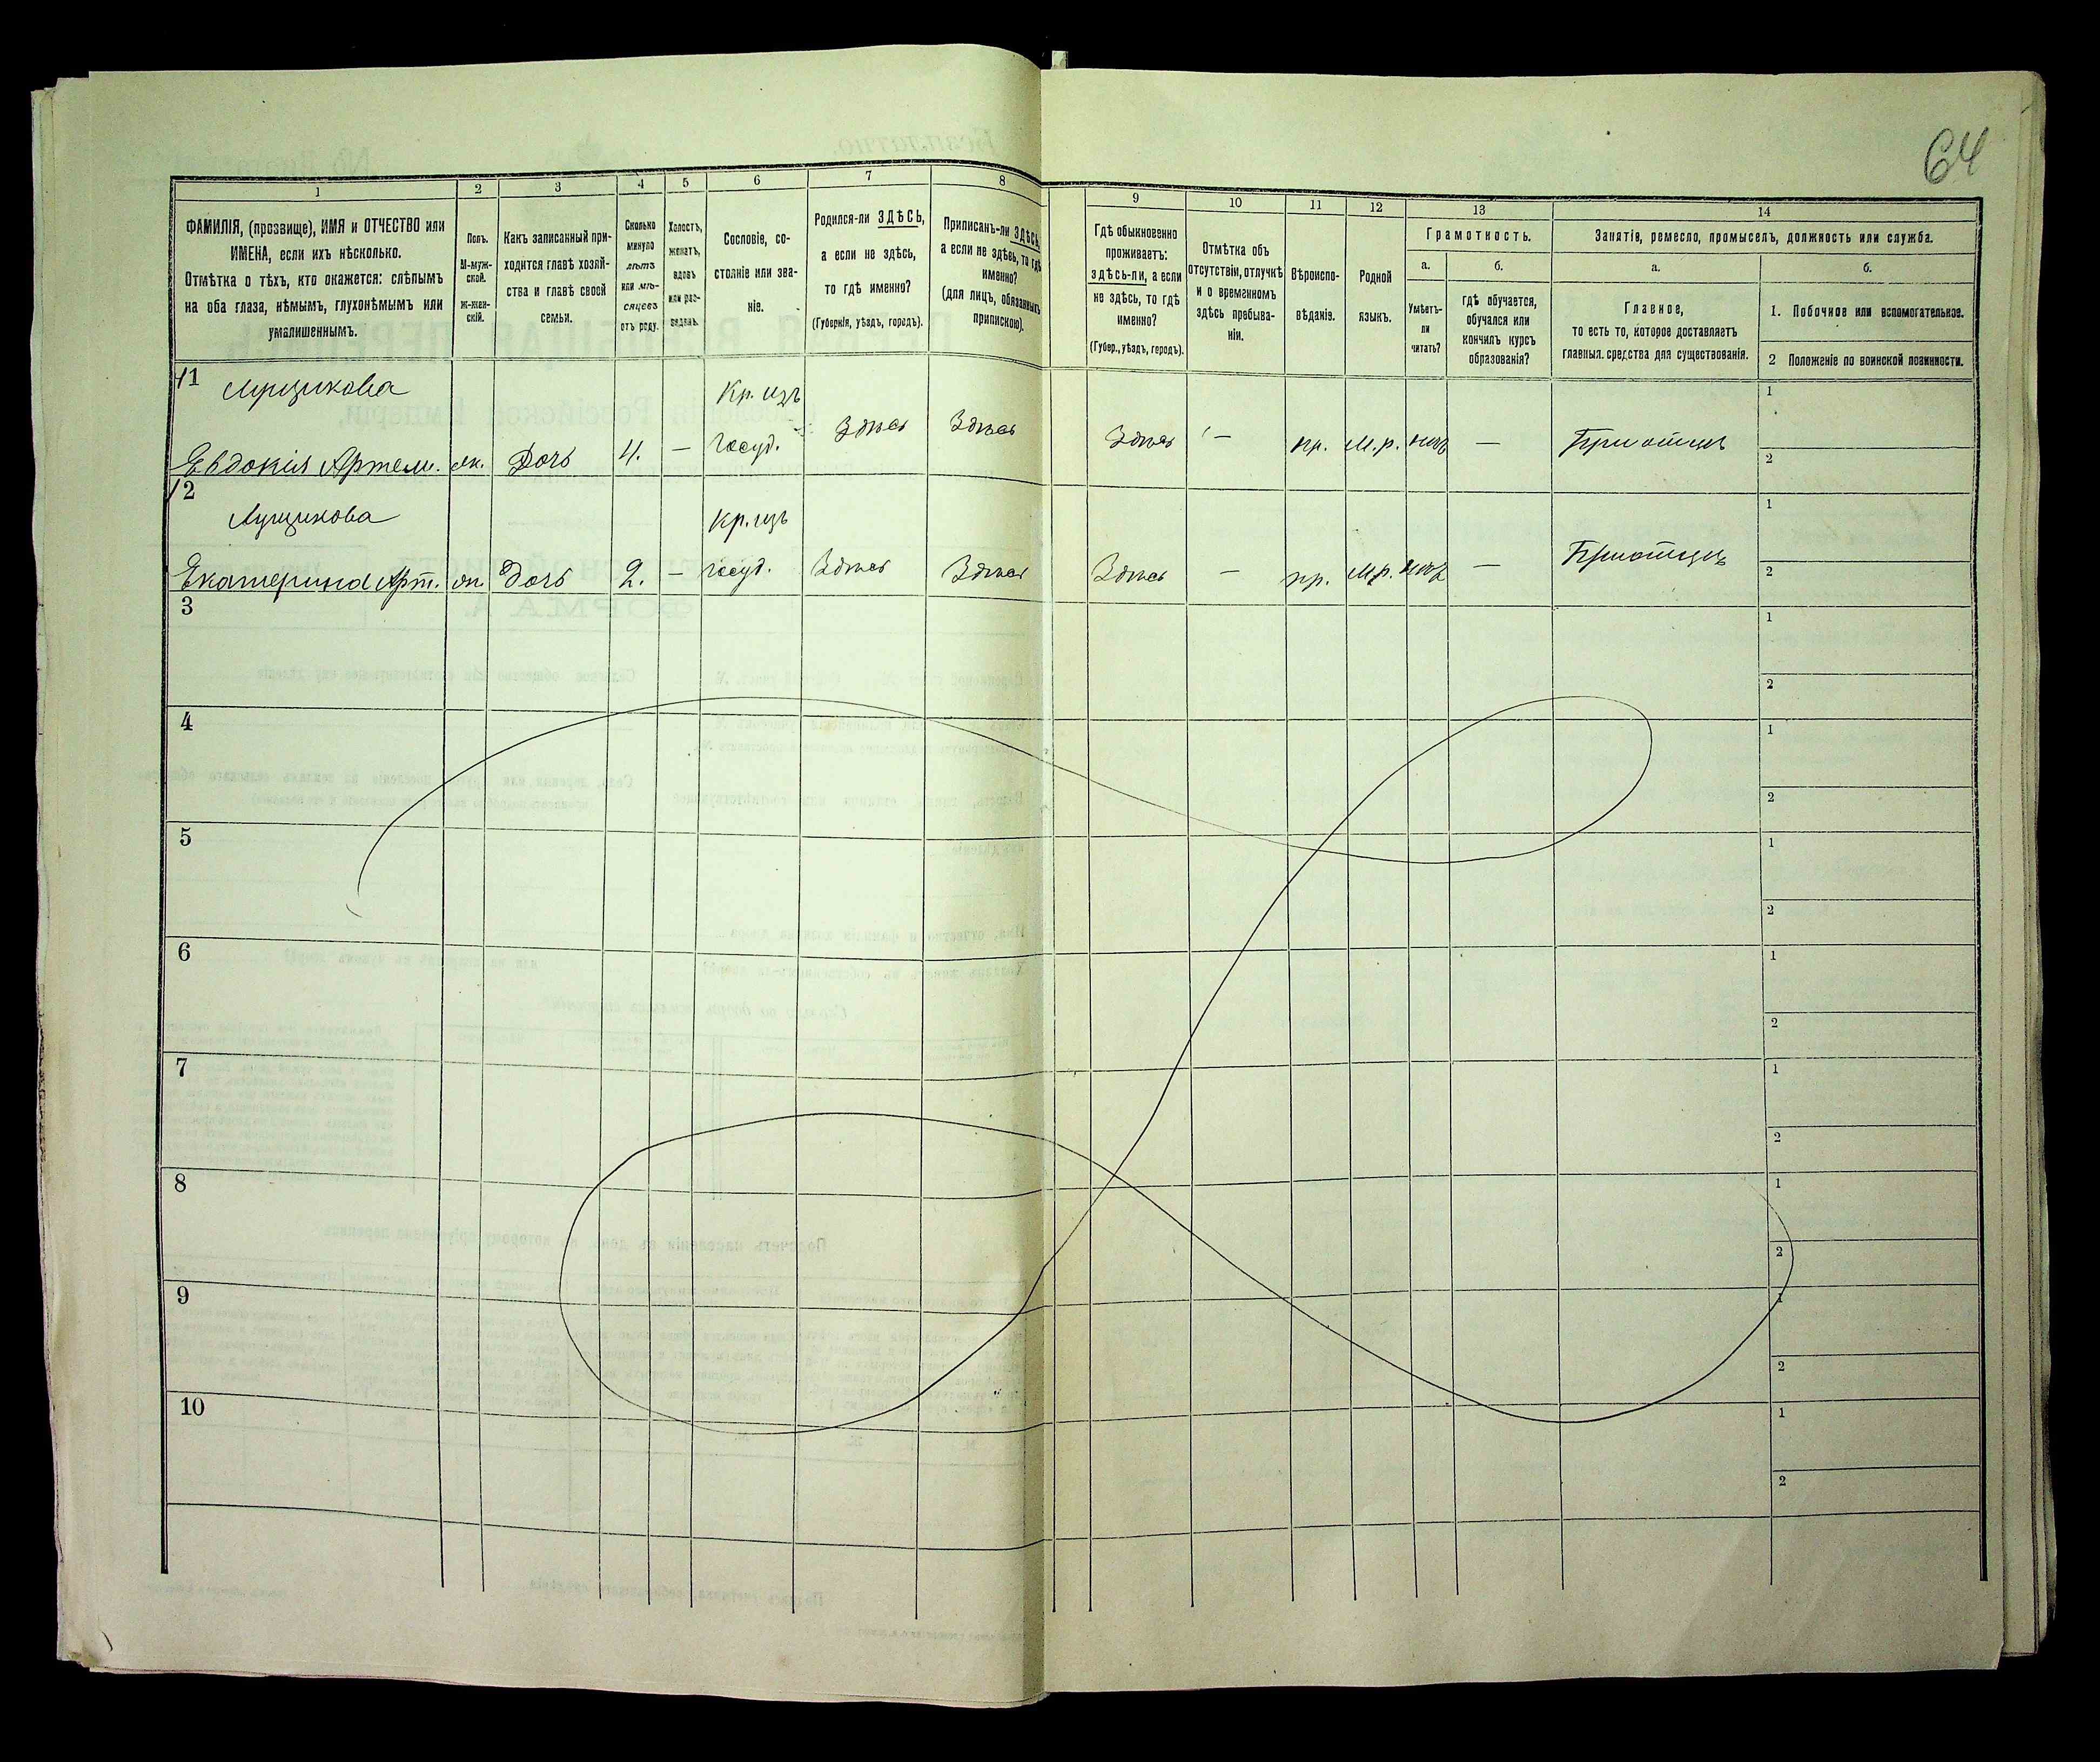 64
1
2
3
4
5
6
7
8
9
10
11
12
13
14
ФАМИЛІЯ, (прозвище), ИМЯ и ОТЧЕСТВО или
ИМЕНА, если ихъ нѣсколько.
Отмѣтка о тѣхъ, кто окажется: слѣпымъ
на оба глаза, нѣмымъ, глухонѣмымъ или
умалишеннымъ.
Полъ.
М-муж-
ской.
Ж-жен-
скій.
Какъ записанный при-
ходится главѣ хозяй-
ства и главѣ своей
семьи.
Сколько
минуло
лѣтъ
или мѣ-
сяцевъ
отъ роду.
Холостъ,
женатъ,
вдовъ
или раз-
веденъ.
Сословіе, со-
стояніе или зва-
ніе.
Родился-ли ЗДѢСЬ,
а если не здѣсь,
то гдѣ именно?
(Губернія, уѣздъ, городъ).
Приписанъ-ли ЗДѢСЬ,
а если не здѣсь, то гдѣ
именно?
(для лицъ, обязанныхъ
припиской).
Гдѣ обыкновенно
проживаетъ:
здѣсь-ли, а если
не здѣсь, то гдѣ
именно?
(Губер., уѣздъ, городъ).
Отмѣтка объ
отсутствіи, отлучкѣ
и о временномъ
здѣсь пребыва-
ніи.
Вѣроиспо-
вѣданіе.
Родной
языкъ.
Грамотность.
а.
Умѣетъ-
ли
читать?
б.
гдѣ обучается,
обучался или
кончилъ курсъ
образованія?
Занятіе, ремесло, промыселъ, должность или служба.
а.
Главное,
то есть то, которое доставляетъ
главныя средства для существованія.
б.
1. Побочное или вспомогательное.
2 Положеніе по воинской повинности.
11
Лущикова
Евдокія Артем. ж. Дочь 4. — Кр. изъ
госуд. Здѣсь Здѣсь Здѣсь — пр. М.р. нѣтъ — При отцѣ
1
2
12
Лущикова
Екатерина Арт. ж. Дочь 2. — Кр. изъ
госуд. Здѣсь Здѣсь Здѣсь — пр. М.р. нѣтъ — При отцѣ
1
2
3
1
2
4
1
2
5
1
2
6
1
2
7
1
2
8
1
2
9
1
2
10
1
2